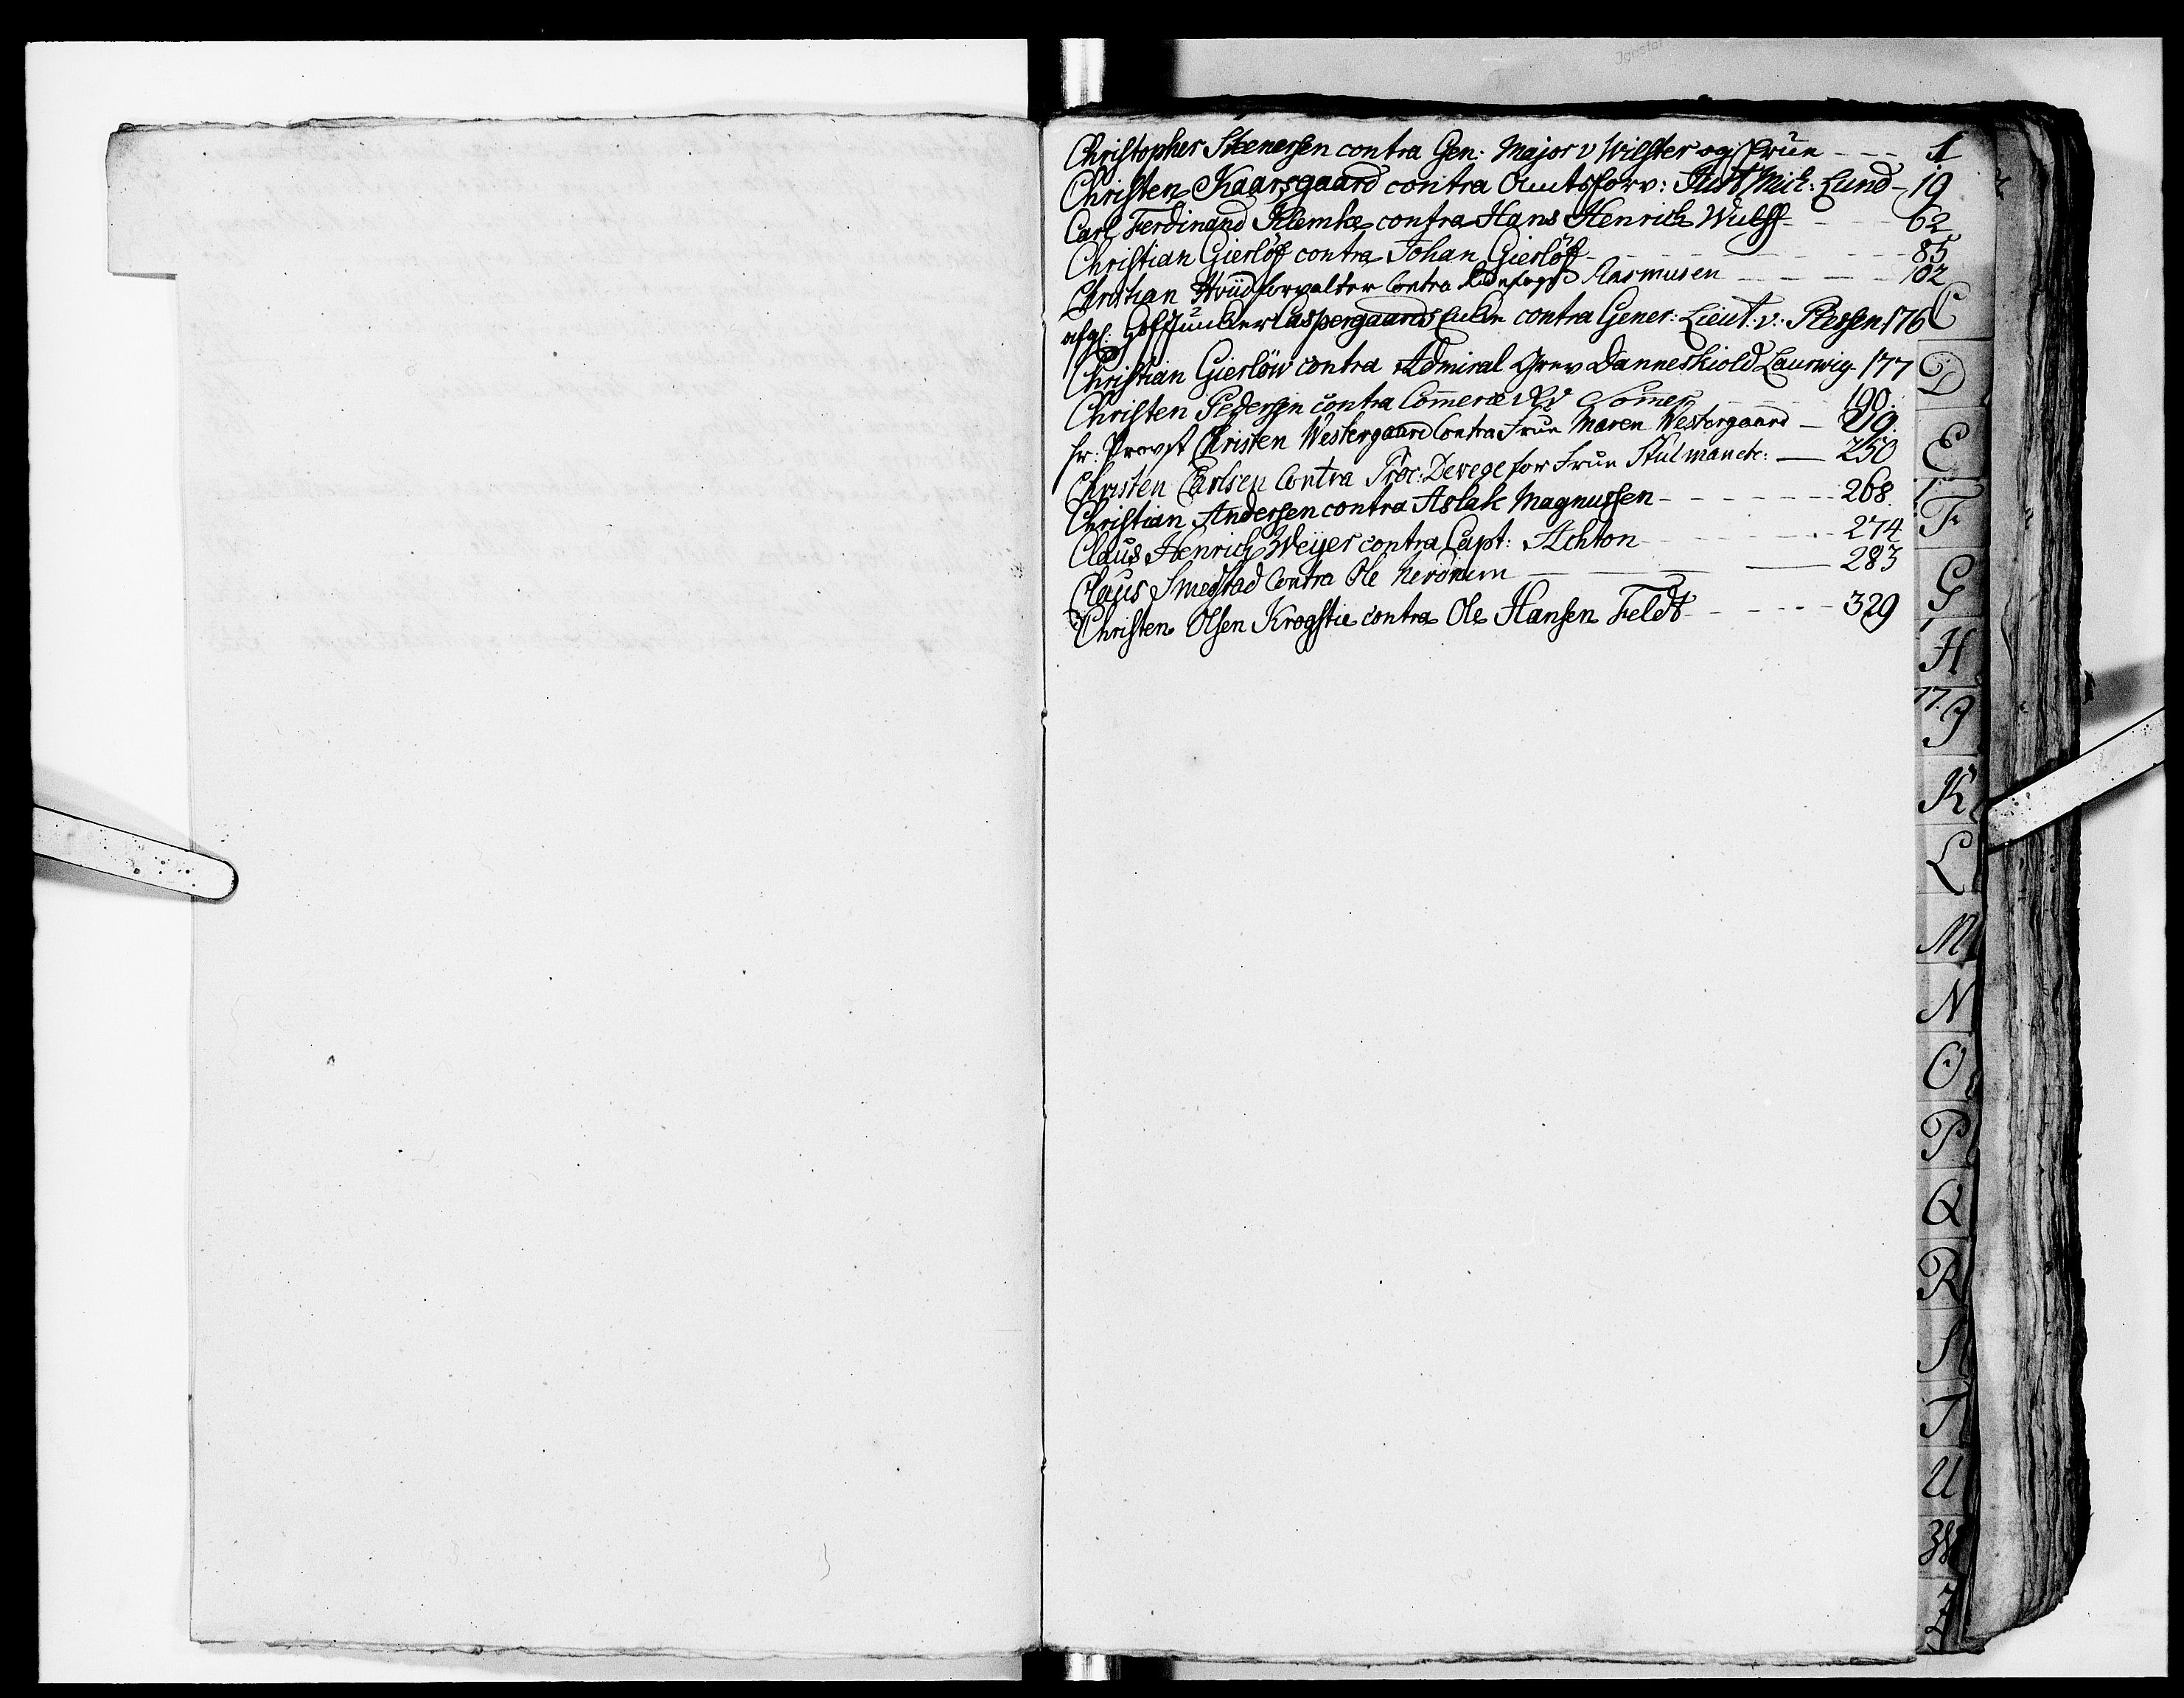 Christopher Steenersen contra Gen: Major v Wilster og Frue - - - 1
Christen Kaarsgaard contra Amtsforv: Just Mich: Lund - 19
Carl Ferdinand Klemke contra Hans Henrich Wulff - - - 62
Christian Gierlöf contra Johan Gierlöf - - - 85
Christian Hviid forvalter Contra Rasmusen - - - 102
afgl: Hof Junker Caspergaards Enke contra Gener: Lieut: v: Plessen 176
Christian Gierlöw contra Admiral Grev Danneskiold Laurwig - 177
Christen Pedersen contra Com̄erce Rd Som̄er - - - 190.
Hr: Provst Christen Westergaard Contra Frue Maren Westergaard - 219.
Christen Carlsen Contra Proc: Devege for Frue Stulmanck: - 250
Christian Andersen contra Aslak Magnussen - - - 268.
Claus Henrich Weyer contra Capt: Achton - - - 274
Claus Smestad Contra Ole - - - 283
Christen Olsen Krogstie contra Ole Hansen Feldt - - - 329
C
D
E
F
G
H
J
K
L
M
N
O
P
Q
R
S
T
U
Z